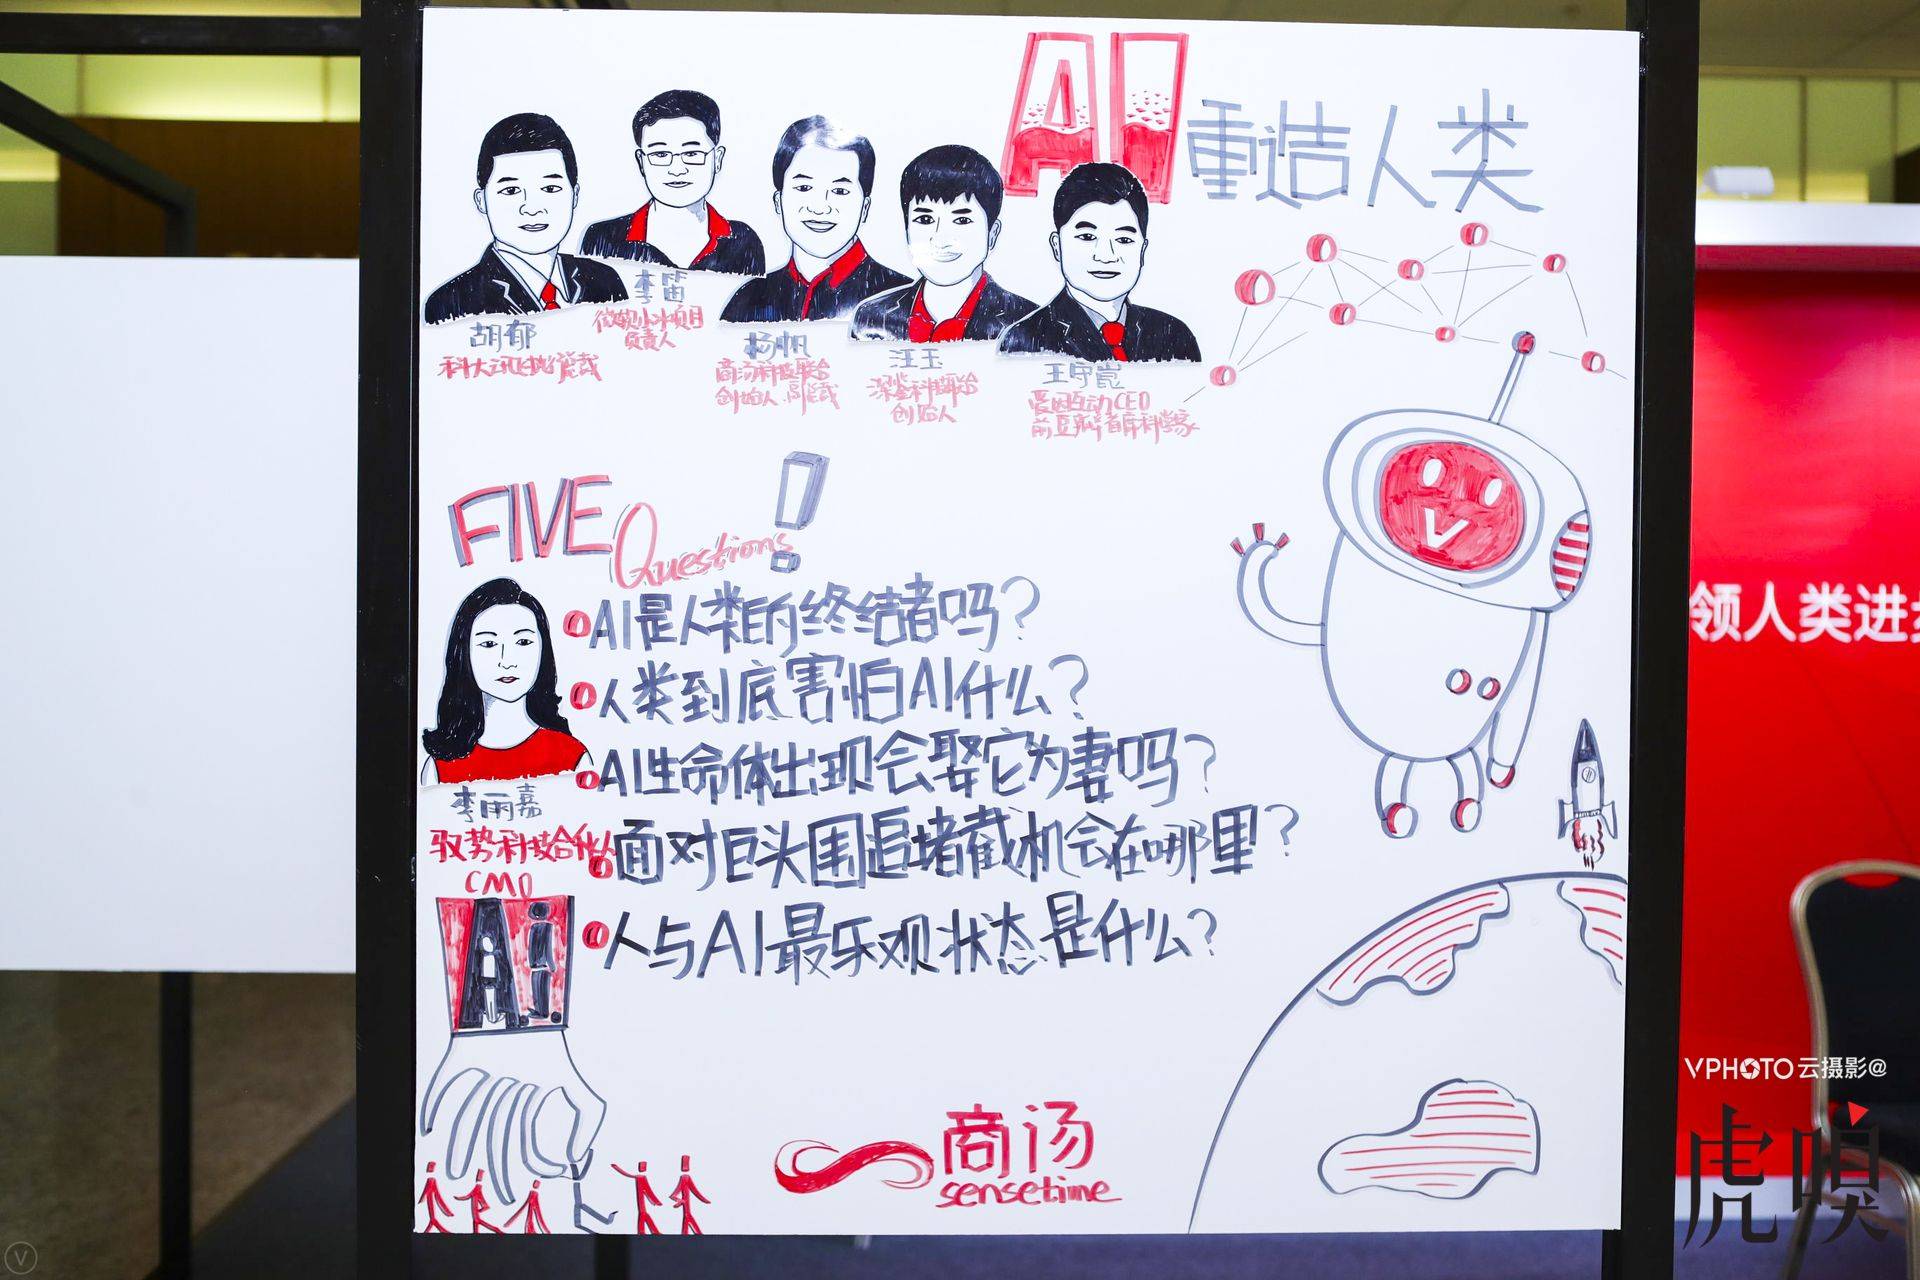 AI重造人类
胡郁
科大讯飞执行总裁
李笛
微软小冰项目
负责人
杨帆
商汤科技联合
创始人 副总裁
汪玉
深鉴科技联合
创始人
王守崑
爱因互动CEO
前豆瓣首席科学家
FIVE Questions!
AI是人类的终结者吗?
人类到底害怕AI什么?
AI生命体出现会娶它为妻吗?
面对巨头围追堵截机会在哪里?
人与AI最乐观状态是什么?
李雨嘉
驭势科技合伙人
CMO
A.i.
商汤
sensetime
领人类进步
VPHOTO云摄影@
虎嗅